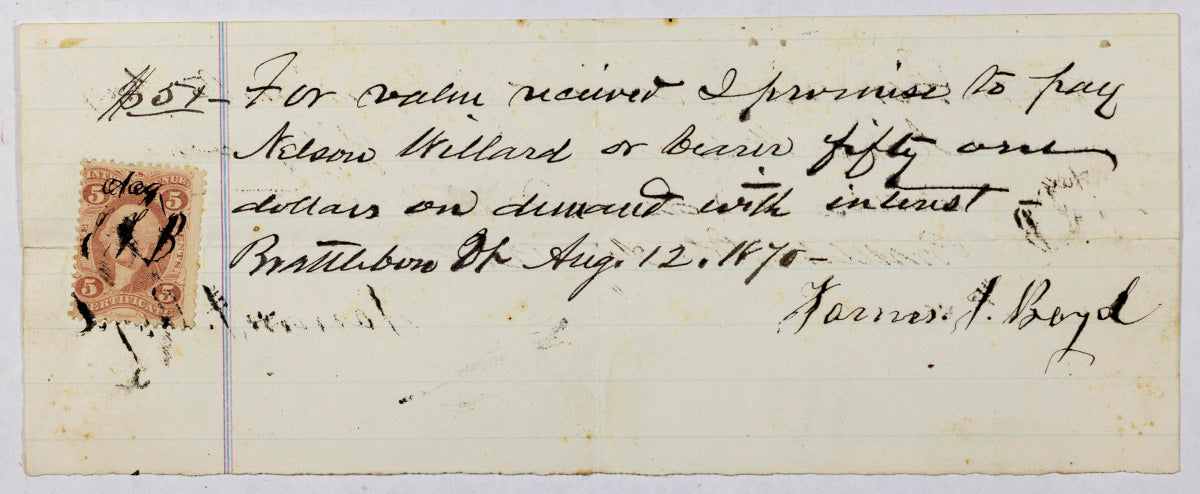 $51- For value received I promise to pay
Nelson Willard or bearer fifty one
dollars on demand with interest -
Brattleboro Vt Aug. 12. 1870 -
J. Boyd
5 5
Aug
B
5 5
CERTIFICATE